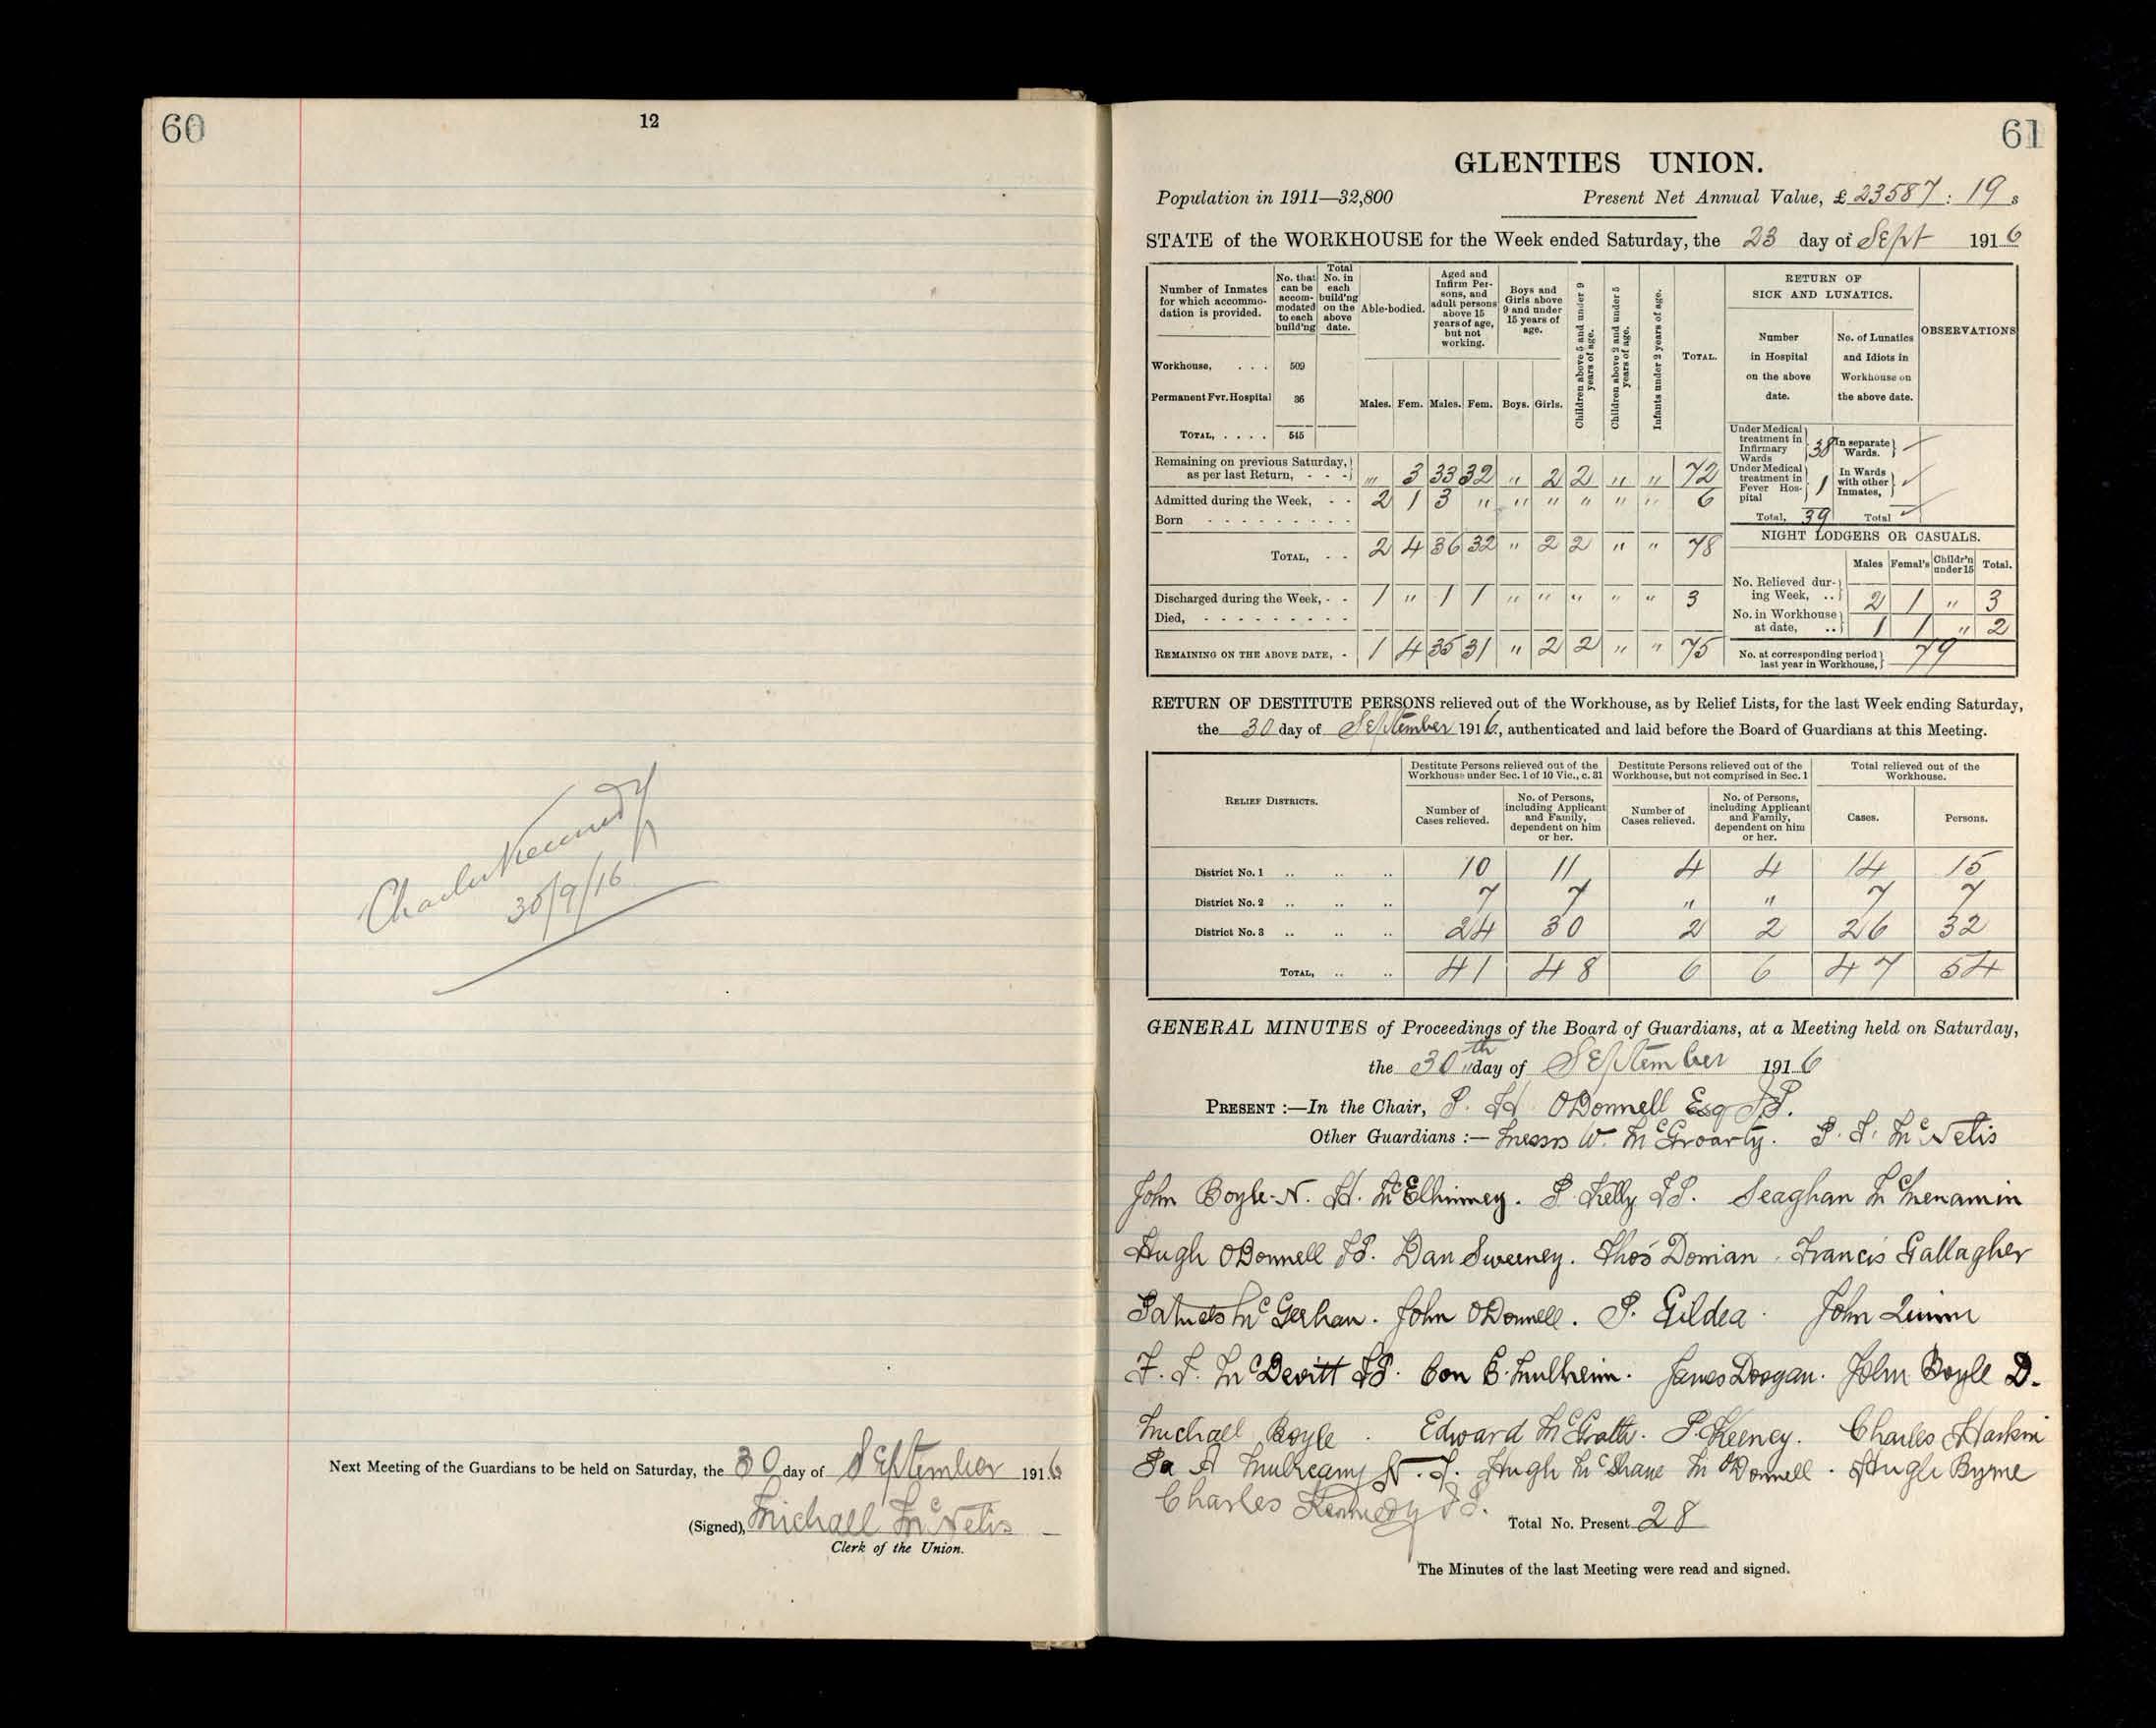 60
12
Charles Kennedy
30/9/16
Next Meeting of the Guardians to be held on Saturday, the 30 day of September 1916
(Signed), Michael McNelis
Clerk of the Union.
61
GLENTIES UNION.
Population in 1911—32,800 Present Net Annual Value, £23587 : 19 s
STATE of the WORKHOUSE for the Week ended Saturday, the 23 day of Sept 1916
Number of Inmates for which accommodation is provided.
No. that can be accommodated to each build'ng
Total No. in each build'ng on the above date.
Able-bodied.
Aged and Infirm Persons, and adult persons above 15 years of age, but not working.
Boys and Girls above 9 and under 15 years of age.
Children above 5 and under 9 years of age.
Children above 2 and under 5 years of age.
Infants under 2 years of age.
TOTAL.
RETURN OF SICK AND LUNATICS.
Number in Hospital on the above date.
No. of Lunatics and Idiots in Workhouse on the above date.
OBSERVATIONS
Workhouse, . . . 509
Permanent Fvr. Hospital 36
TOTAL, . . . . 545
Males. Fem. Males. Fem. Boys. Girls.
Remaining on previous Saturday, as per last Return, - - - " 3 33 32 " 2 2 " " 72
Admitted during the Week, - - 2 1 3 " " " " " " 6
Born - - - - - - - - -
TOTAL, - - 2 4 36 32 " 2 2 " " 78
Discharged during the Week, - - 1 " 1 1 " " " " " 3
Died, - - - - - - - - -
REMAINING ON THE ABOVE DATE, - 1 4 35 31 " 2 2 " " 75
Under Medical treatment in Infirmary Wards 38 In separate Wards. ✓
Under Medical treatment in Fever Hospital 1 In Wards with other Inmates, ✓
Total, 39 Total ✓
NIGHT LODGERS OR CASUALS.
Males Femal's Childr'n under 15 Total.
No. Relieved during Week, .. 2 1 " 3
No. in Workhouse at date, .. 1 1 " 2
No. at corresponding period last year in Workhouse, 79
RETURN OF DESTITUTE PERSONS relieved out of the Workhouse, as by Relief Lists, for the last Week ending Saturday,
the 30 day of September 1916, authenticated and laid before the Board of Guardians at this Meeting.
RELIEF DISTRICTS.
Destitute Persons relieved out of the Workhouse under Sec. 1 of 10 Vic., c. 31
Destitute Persons relieved out of the Workhouse, but not comprised in Sec. 1
Total relieved out of the Workhouse.
Number of Cases relieved.
No. of Persons, including Applicant and Family, dependent on him or her.
Number of Cases relieved.
No. of Persons, including Applicant and Family, dependent on him or her.
Cases.
Persons.
District No. 1 .. .. .. 10 11 4 4 14 15
District No. 2 .. .. .. 7 7 " " 7 7
District No. 3 .. .. .. 24 30 2 2 26 32
TOTAL, .. .. 41 48 6 6 47 54
GENERAL MINUTES of Proceedings of the Board of Guardians, at a Meeting held on Saturday,
the 30th day of September 1916
PRESENT :—In the Chair, P. H. O'Donnell Esq J.P.
Other Guardians :— Messrs W. McGroarty. P. J. McNelis
John Boyle-N. H. McElhinney. P. Kelly J.P. Seaghan McMenamin
Hugh O'Donnell J.P. Dan Sweeney. Thos Dorrian. Francis Gallagher
McGeehan. John O'Donnell. P. Gildea. John Quinn
F. J. McDevitt J.P. Con B. Mulhern. James Doogan. John Boyle D.
Michael Boyle. Edward McGrath. P. Keeney. Charles Haskin
Mulreany N.T. Hugh McShane M O'Donnell. Hugh Byrne
Charles Kennedy J.P.
Total No. Present 28
The Minutes of the last Meeting were read and signed.